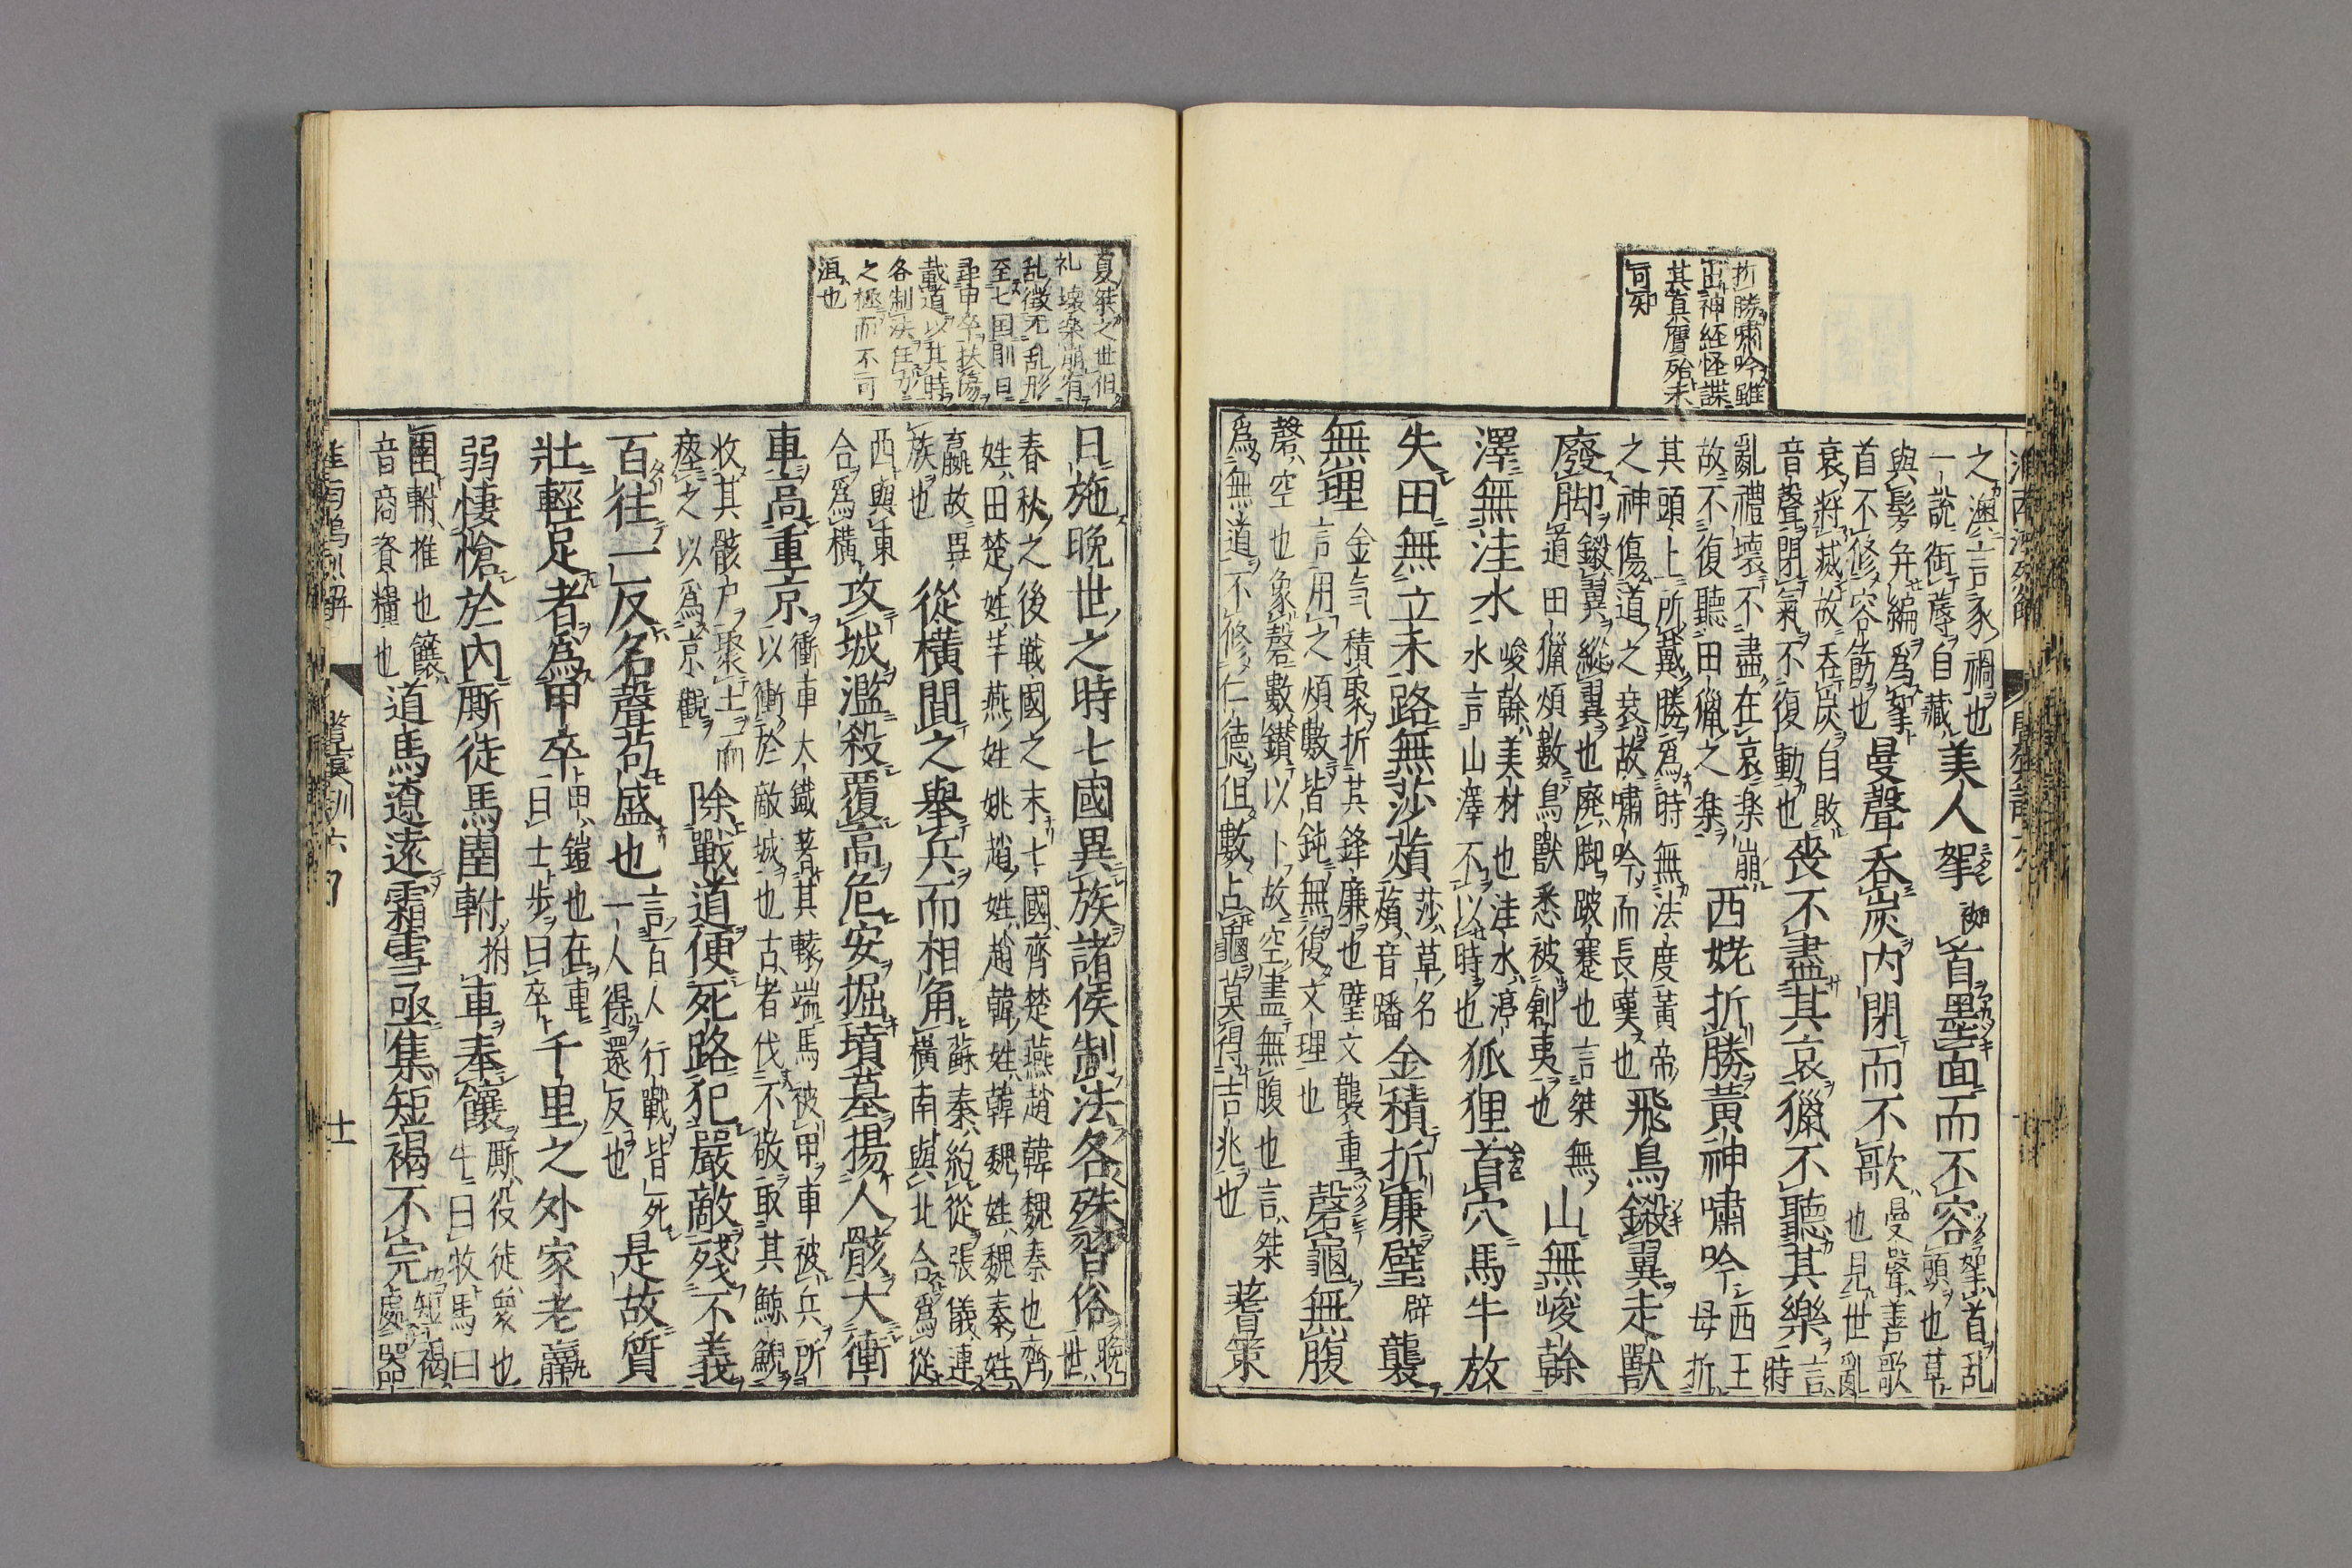 折勝嘯吟雖
出神経怪諜
其眞贋殆未
可知
之澳言豕禍也
一說銜蓐自藏
美人挐首墨面而不容
挐首乱
頭也草
與髮幷編爲挐
首不修容飾也
曼聲呑炭内閉而不歌
曼聲善歌
也見世亂
衰將滅故呑炭自敗
音聲閉氣不復動也
喪不盡其哀獵不聽其樂
言
時
亂禮壞不盡在哀楽崩
故不復聽田獵之楽
西姥折勝黃神嘯吟
西王
母折
其頭上所戴勝爲時無法度黃帝
之神傷道之衰故嘯吟而長嘆也
飛鳥鎩翼走獸
廢脚
鎩翼縱翼也廢脚跛蹇也言桀無
道田獵煩數鳥獸悉被創夷也
山無峻幹
澤無洼水
峻幹美材也洼水渟
水言山澤不以時也
狐狸首穴馬牛放
失田無立禾路無莎薠
莎草名
薠音蹯
金積折廉璧襲
無理
金気積聚折其鋒廉也璧文襲重
言用之煩數皆鈍無復文理也
磬龜無腹
磬空也象磬數鑽以卜故空盡無腹也言桀
爲無道不修仁德但數占龜莫得吉兆也
蓍策
夏桀之世但
礼壊楽崩有
乱徴无乱形
至七国則日
尋甲卒扶傷
載道以其時
各制法任力
之極而不可
沮也
日施晚世之時七國異族諸侯制法各殊習俗
晚
世
春秋之後戰國之末七國齊楚燕趙韓魏秦也齊
姓田楚姓羋燕姓姚趙姓趙韓姓韓魏姓魏秦姓
嬴故異
族也
從横間之舉兵而相角
蘇秦約從張儀連
横南與北合爲從
西與東
合爲横
攻城濫殺覆高危安掘墳墓揚人骸大衝
車高重京
衝車大鐵著其轅端馬被甲車被兵所
以衝於敵城也古者伐不敬取其鯨鯢
收其骸尸聚土而
瘞之以爲京觀
除戰道便死路犯嚴敵殘不義
百往一反名聲苟盛也
言百人行戰皆死
一人得還反也
是故質
壯輕足者爲甲卒
甲鎧也在車
曰士步曰卒
千里之外家老羸
弱悽愴於内厮徒馬圉軵車奉饟
厮役徒衆也
牛曰牧馬曰
圉軵推也饟
音商資糧也
道馬遼遠霜雪亟集短褐不完
短褐
處器
淮南鴻烈解
覽冥訓六
十